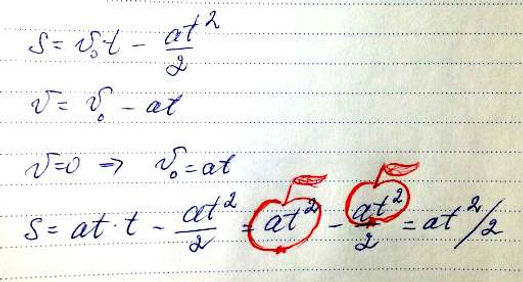 S = v₀·t − at²/2
v = v₀ − at
v=0 ⇒ v₀ = at
S = at·t − at²/2 = at² − at²/2 = at²/2